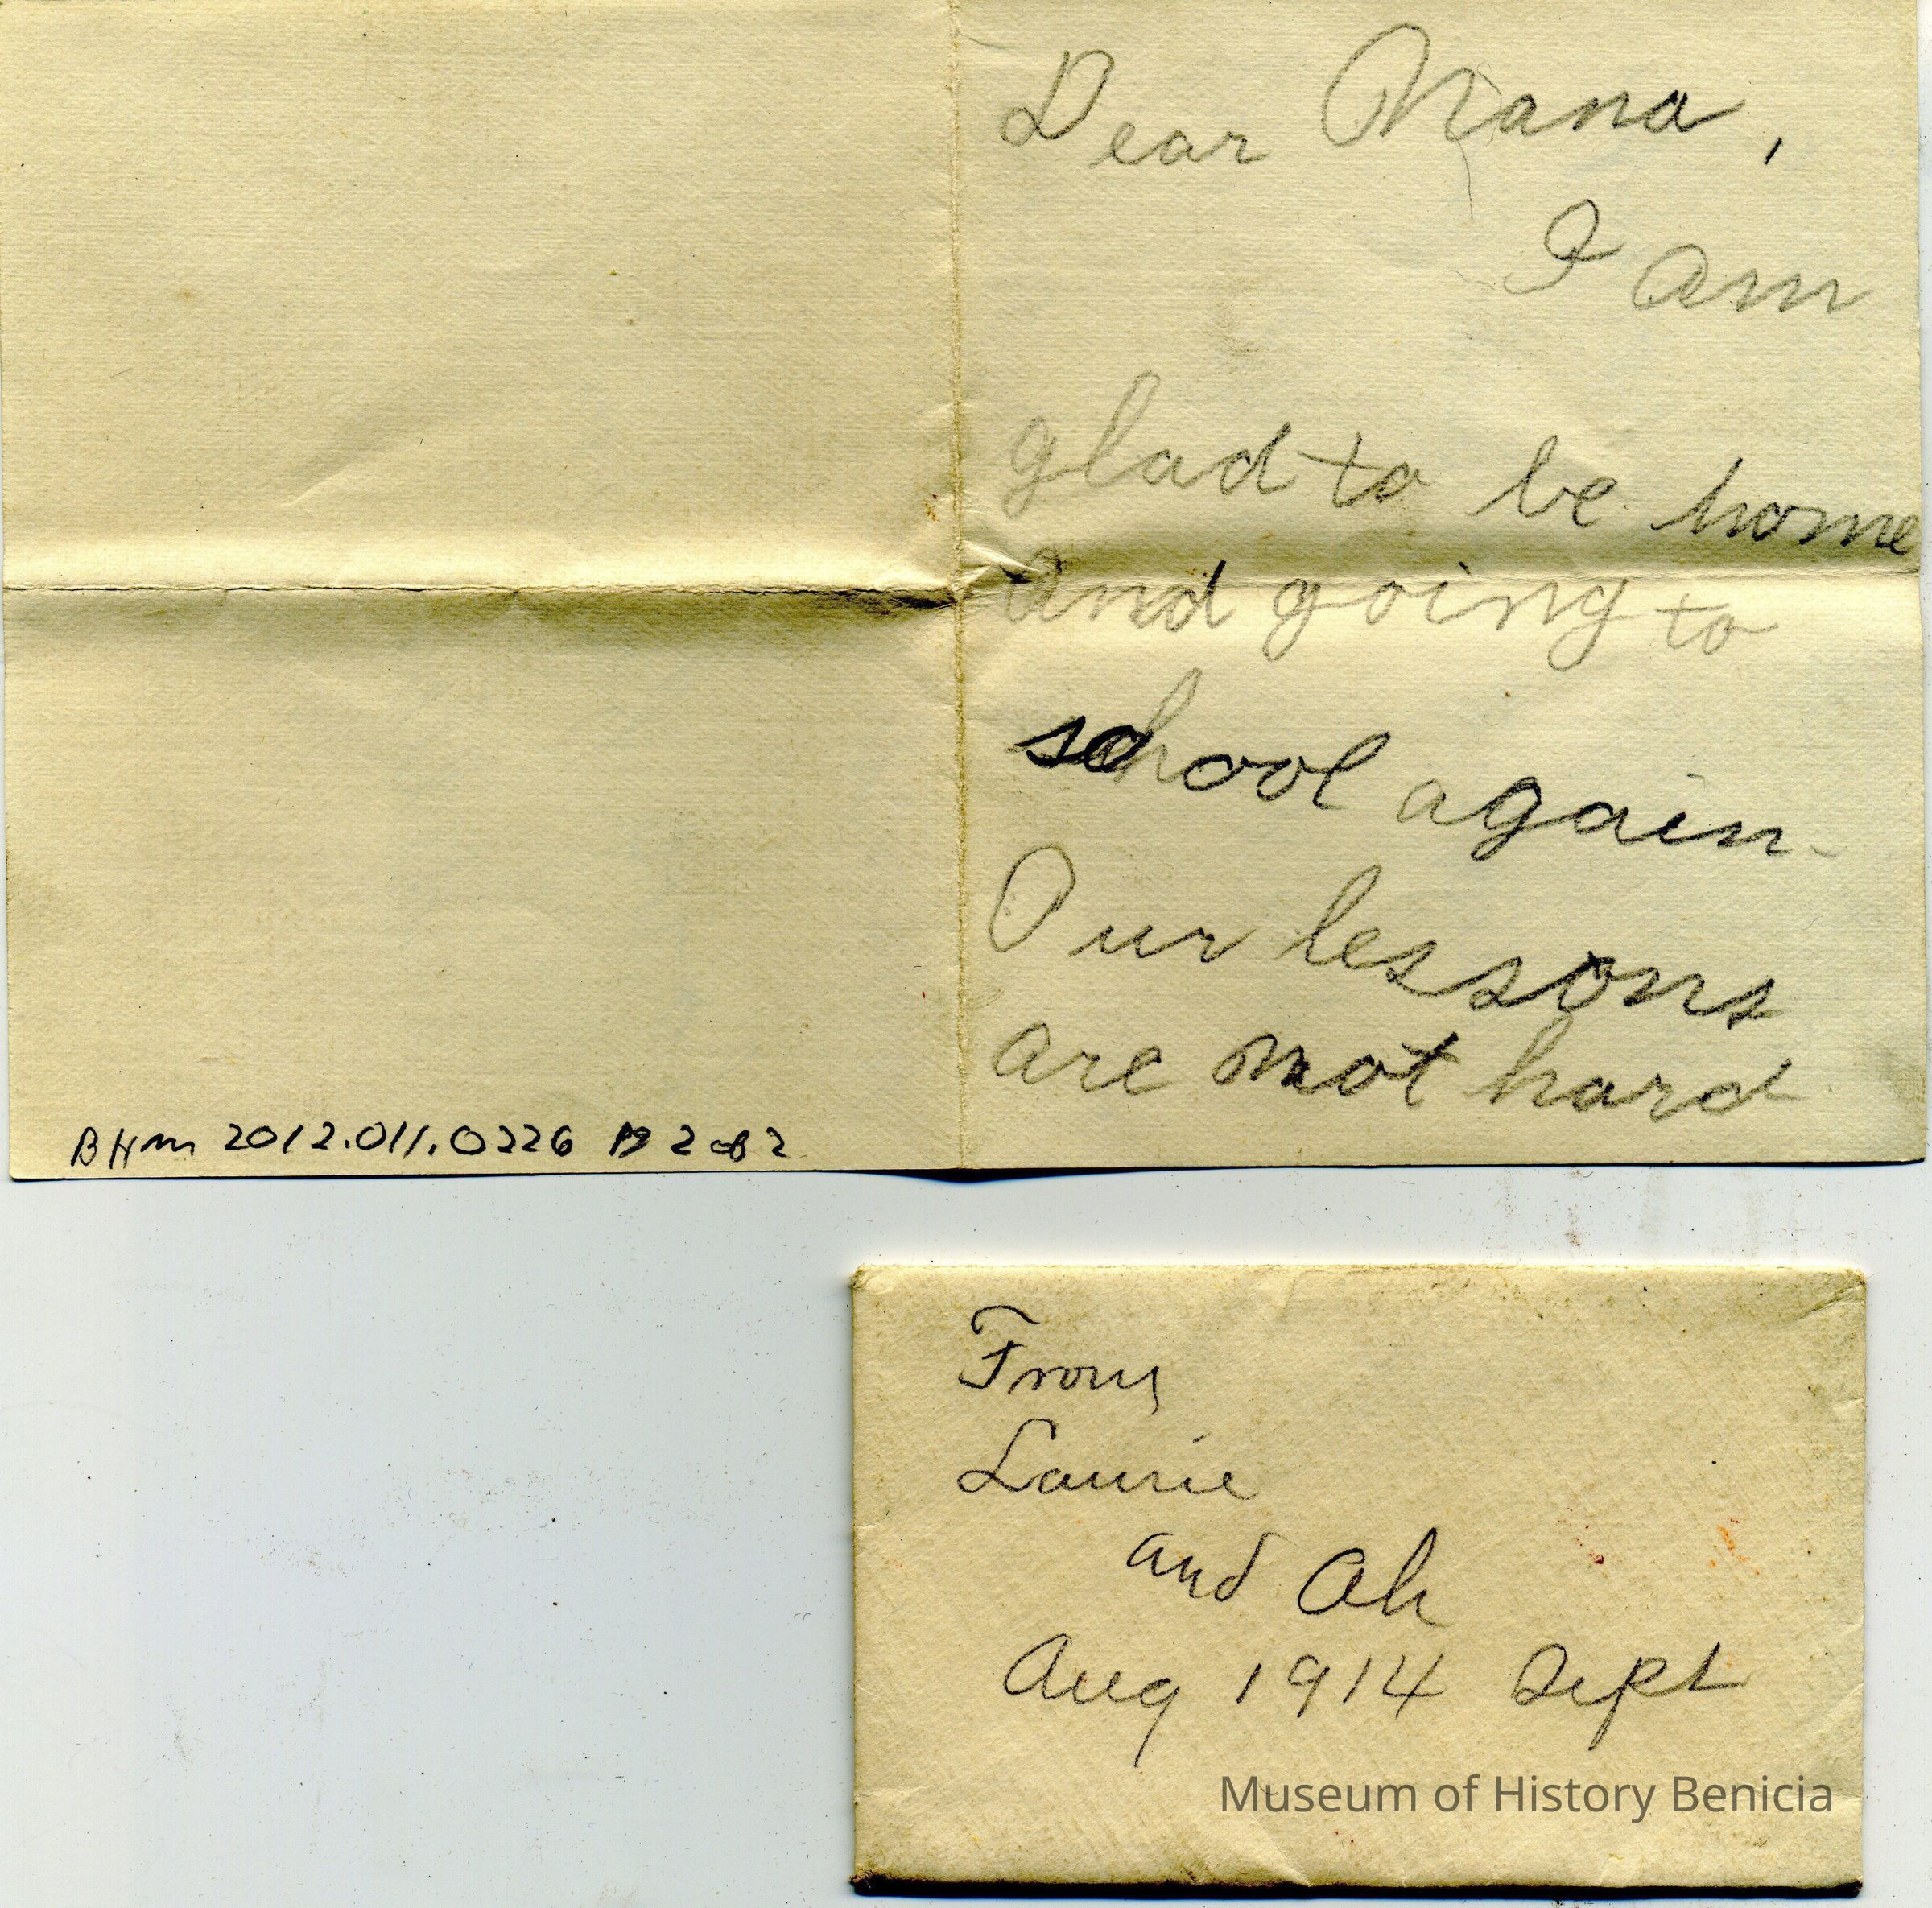 Dear Nana,
I am
glad to be home
and going to
school again.
Our lessons
are not hard
BHm 2012.011.0226 pg 2 of 2
From
Laurie
and Ah
Aug 1914 Sept
Museum of History Benicia